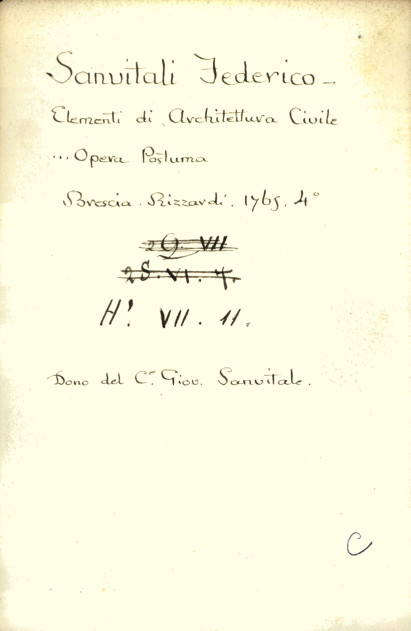 Sanvitali Federico -
Elementi di Architettura Civile
... Opera Postuma
Brescia. Rizzardi. 1765. 4°
2 Q. VII
2 S. VI. 4.
H'. VII. 11.
Dono del C.te Giov. Sanvitale.
C